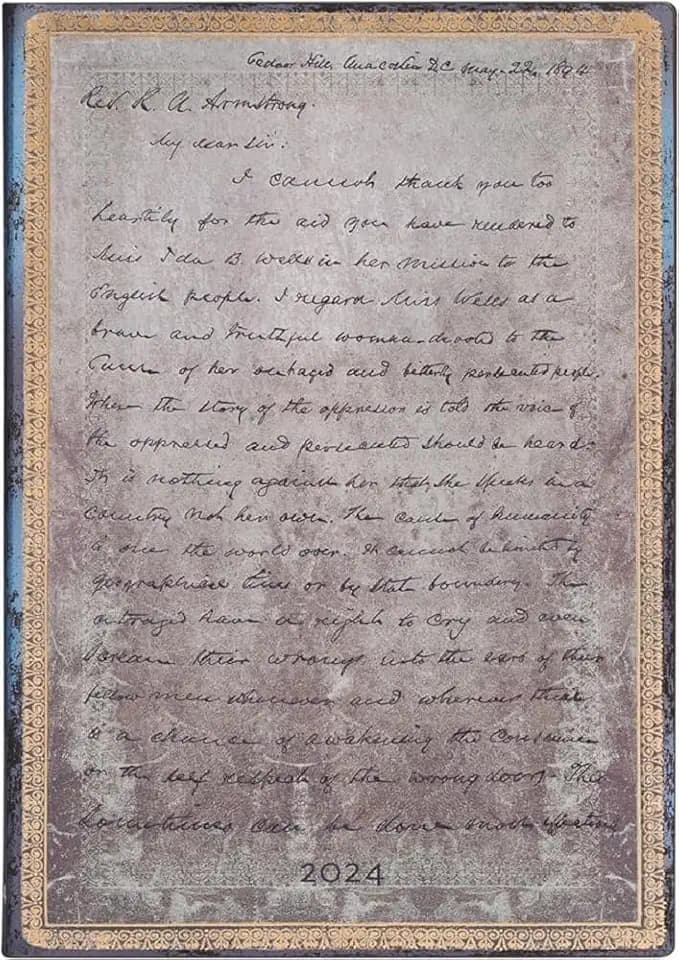 Cedar Hill, Anacostia D.C. May. 22, 1894
Rev. R. A. Armstrong.
My dear Sir:
I cannot thank you too
heartily for the aid you have rendered to
Miss Ida B. Wells in her mission to the
English people. I regard Miss Wells as a
brave and truthful woman devoted to the
Cause of her outraged and bitterly persecuted people.
Where the story of the oppression is told the voice of
the oppressed and persecuted should be heard.
It is nothing against her that she speaks in a
country not her own. The cause of humanity
is one the world over. It cannot be limited by
geographical lines or by State boundary. The
outraged have a right to cry and even
scream their wrongs into the ears of their
fellow men whenever and wherever there
is a chance of awakening the Conscience
or the self respect of the wrong doers. This
sometimes can be done more effective
2024